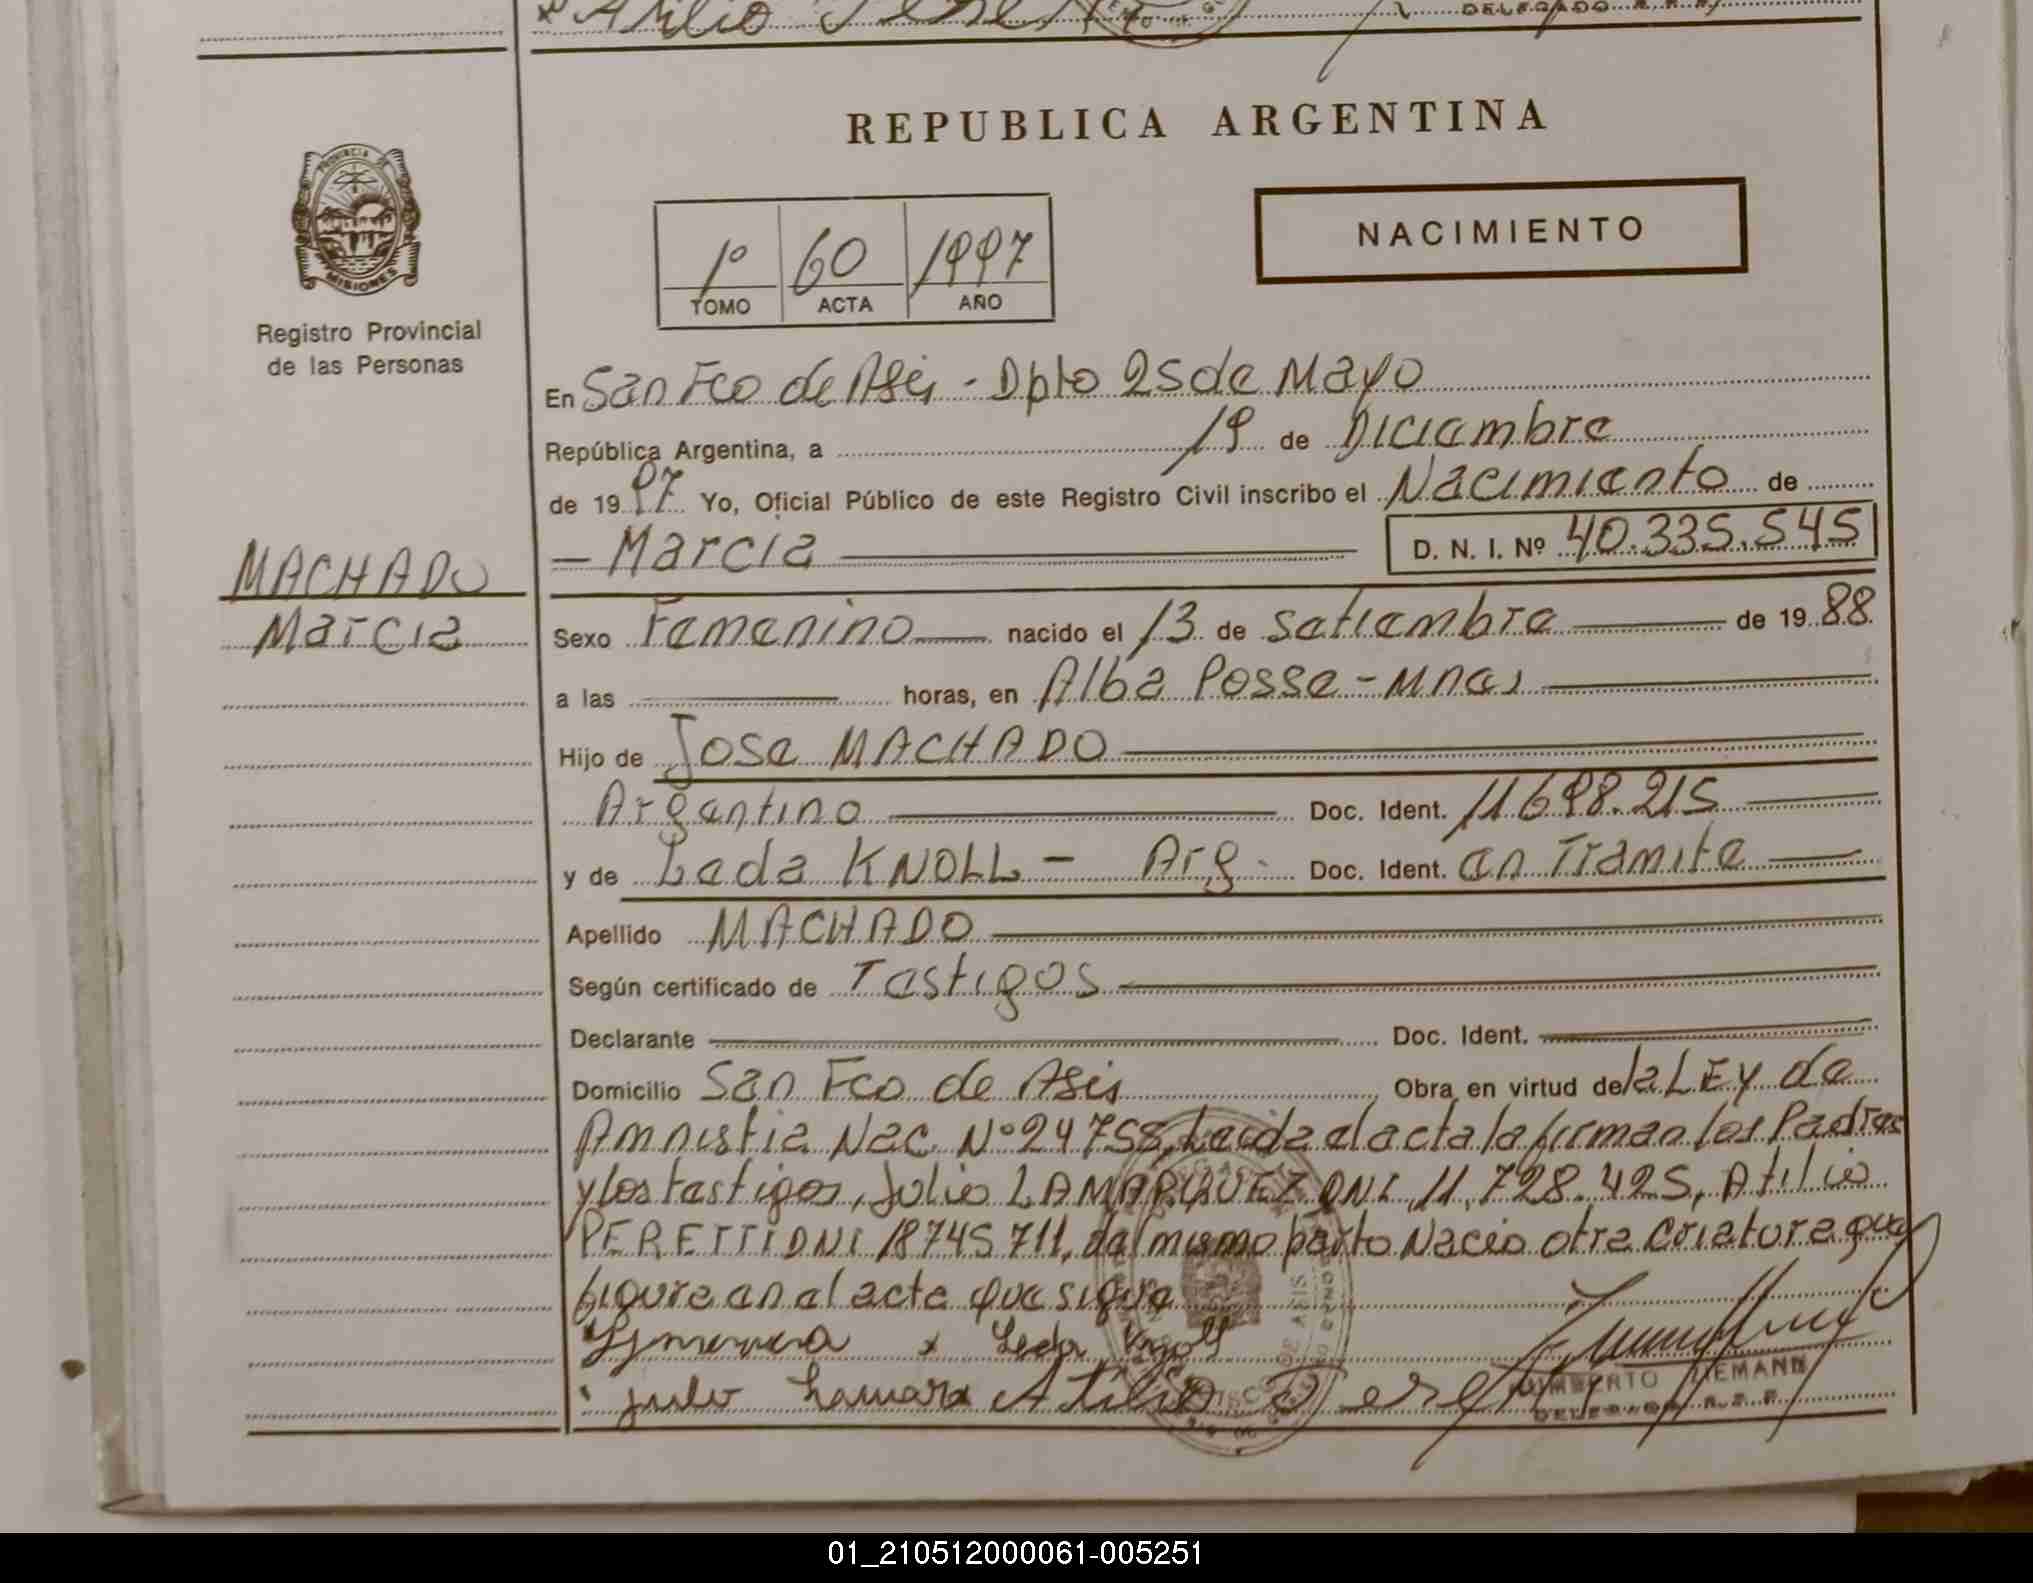 Atilio Pere
DELEGADO R. P. P.
REPUBLICA ARGENTINA
PROVINCIA DE
MISIONES
Registro Provincial
de las Personas
1º 60 1997
TOMO ACTA AÑO
NACIMIENTO
En San Fco de Asis - Dpto 25 de Mayo
República Argentina, a 19 de Diciembre
de 1997 Yo, Oficial Público de este Registro Civil inscribo el Nacimiento de
- Marcia D. N. I. Nº 40.335.545
MACHADO
Marcia
Sexo Femenino nacido el 13 de setiembre de 1988
a las horas, en Alba Posse - Mnes
Hijo de Jose MACHADO
Argentino Doc. Ident. 11.698.215
y de Leda KNOLL - Arg. Doc. Ident. en Tramite
Apellido MACHADO
Según certificado de Testigos
Declarante Doc. Ident.
Domicilio San Fco de Asis Obra en virtud de la LEY de
Amnistia Nac. Nº 24755, Leida el acta la firman los Padres
y los testigos, Julio LAMARQUEZ DNI 11.728.425, Atilio
PERETTI DNI 18745711, del mismo parto Nacio otra criatura que
figura en el acta que sigue
x Leda Knoll
Julio Lamar Atilio Peretti
HUMBERTO
DELEGADO R. P. P.
01_210512000061-005251